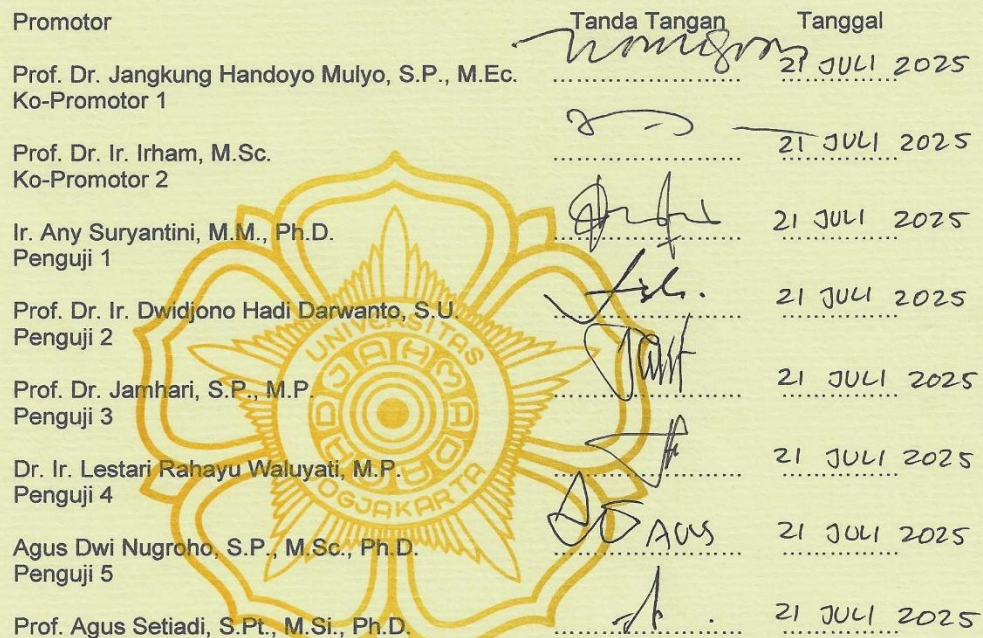 Promotor Tanda Tangan Tanggal
Prof. Dr. Jangkung Handoyo Mulyo, S.P., M.Ec. .................... 21 JULI 2025
Ko-Promotor 1
Prof. Dr. Ir. Irham, M.Sc. .................... 21 JULI 2025
Ko-Promotor 2
Ir. Any Suryantini, M.M., Ph.D. .................... 21 JULI 2025
Penguji 1
Prof. Dr. Ir. Dwidjono Hadi Darwanto, S.U. .................... 21 JULI 2025
Penguji 2
Prof. Dr. Jamhari, S.P., M.P. .................... 21 JULI 2025
Penguji 3
Dr. Ir. Lestari Rahayu Waluyati, M.P. .................... 21 JULI 2025
Penguji 4
Agus Dwi Nugroho, S.P., M.Sc., Ph.D. .................... 21 JULI 2025
Penguji 5
Prof. Agus Setiadi, S.Pt., M.Si., Ph.D. .................... 21 JULI 2025
UNIVERSITAS
GADJAH MADA
YOGJAKARTA